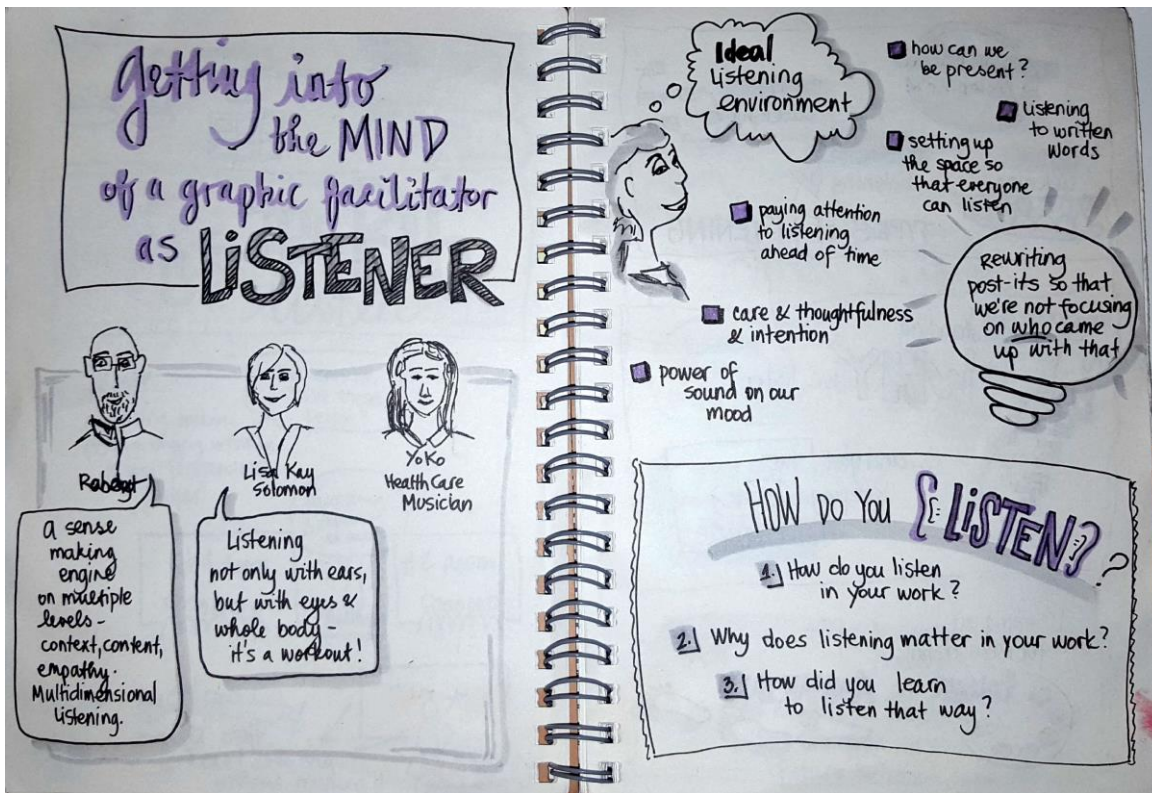 getting into
the MIND
of a graphic facilitator
as LiSTENER
Lisa Kay
Solomon
YoKo
HealthCare
Musician
a sense
making
engine
on multiple
levels-
context, content,
empathy.
Multidimensional
Listening.
Listening
not only with ears,
but with eyes &
whole body-
it's a workout!
Ideal
Listening
environment
how can we
be present?
Listening
to written
words
setting up
the space so
that everyone
can listen
paying attention
to listening
ahead of time
care & thoughtfulness
& intention
power of
sound on our
mood
Rewriting
post-its so that
we're not focusing
on who came
up with that
HOW DO YOU LiSTEN?
1. How do you listen
in your work?
2. Why does listening matter in your work?
3. How did you learn
to listen that way?